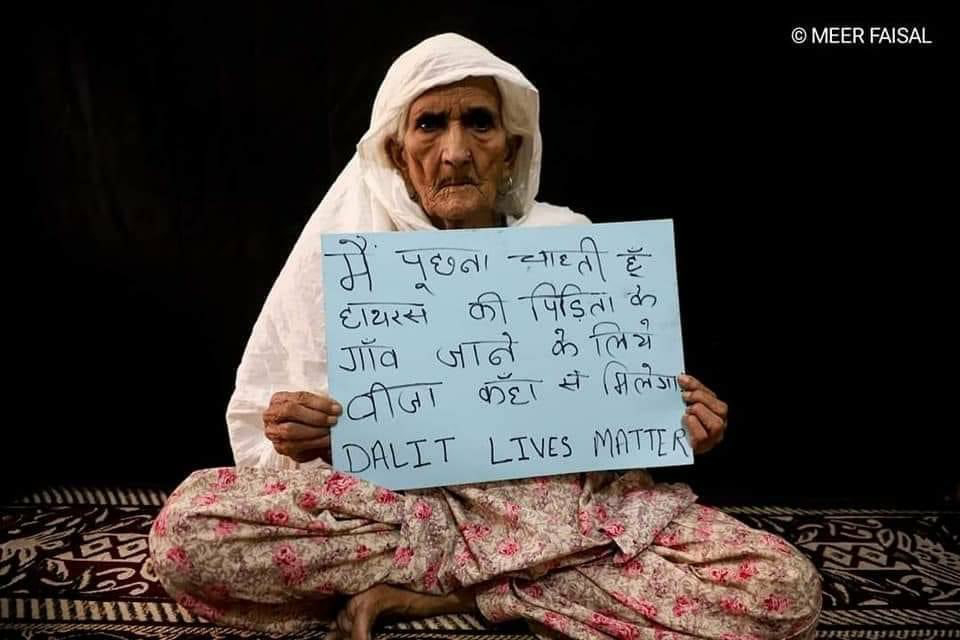 © MEER FAISAL
मैं पूछना चाहती हूँ
हाथरस की पिड़िता के
गाँव जाने के लिये
वीजा कँहा से मिलेगा
DALIT LIVES MATTER